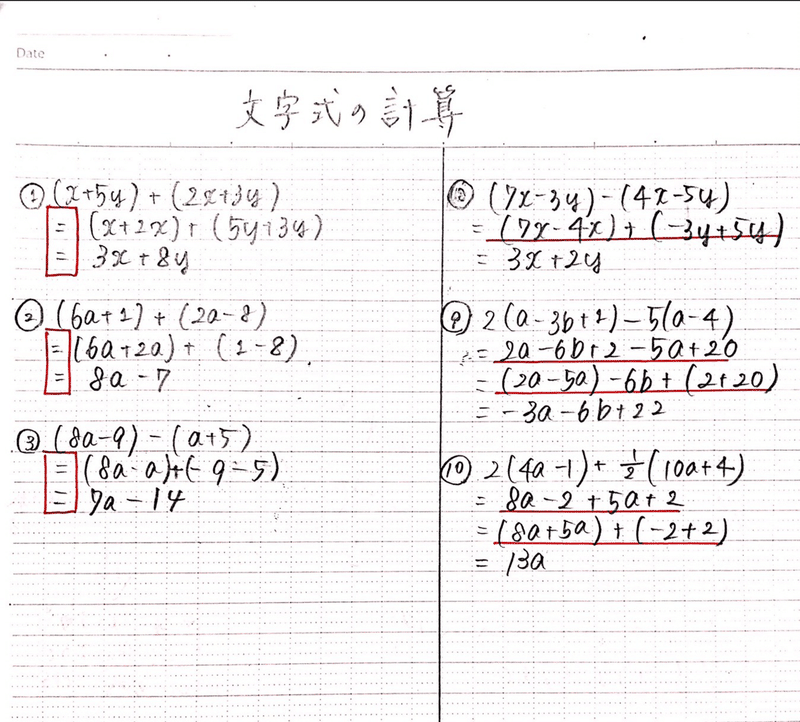 Date
文字式の計算
① (x+5y)+(2x+3y)
= (x+2x)+(5y+3y)
= 3x+8y
② (6a+1)+(2a-8)
= (6a+2a)+(1-8)
= 8a-7
③ (8a-9)-(a+5)
= (8a-a)+(-9-5)
= 7a-14
(7x-3y)-(4x-5y)
= (7x-4x)+(-3y+5y)
= 3x+2y
⑨ 2(a-3b+1)-5(a-4)
= 2a-6b+2-5a+20
= (2a-5a)-6b+(2+20)
= -3a-6b+22
⑩ 2(4a-1)+½(10a+4)
= 8a-2+5a+2
= (8a+5a)+(-2+2)
= 13a